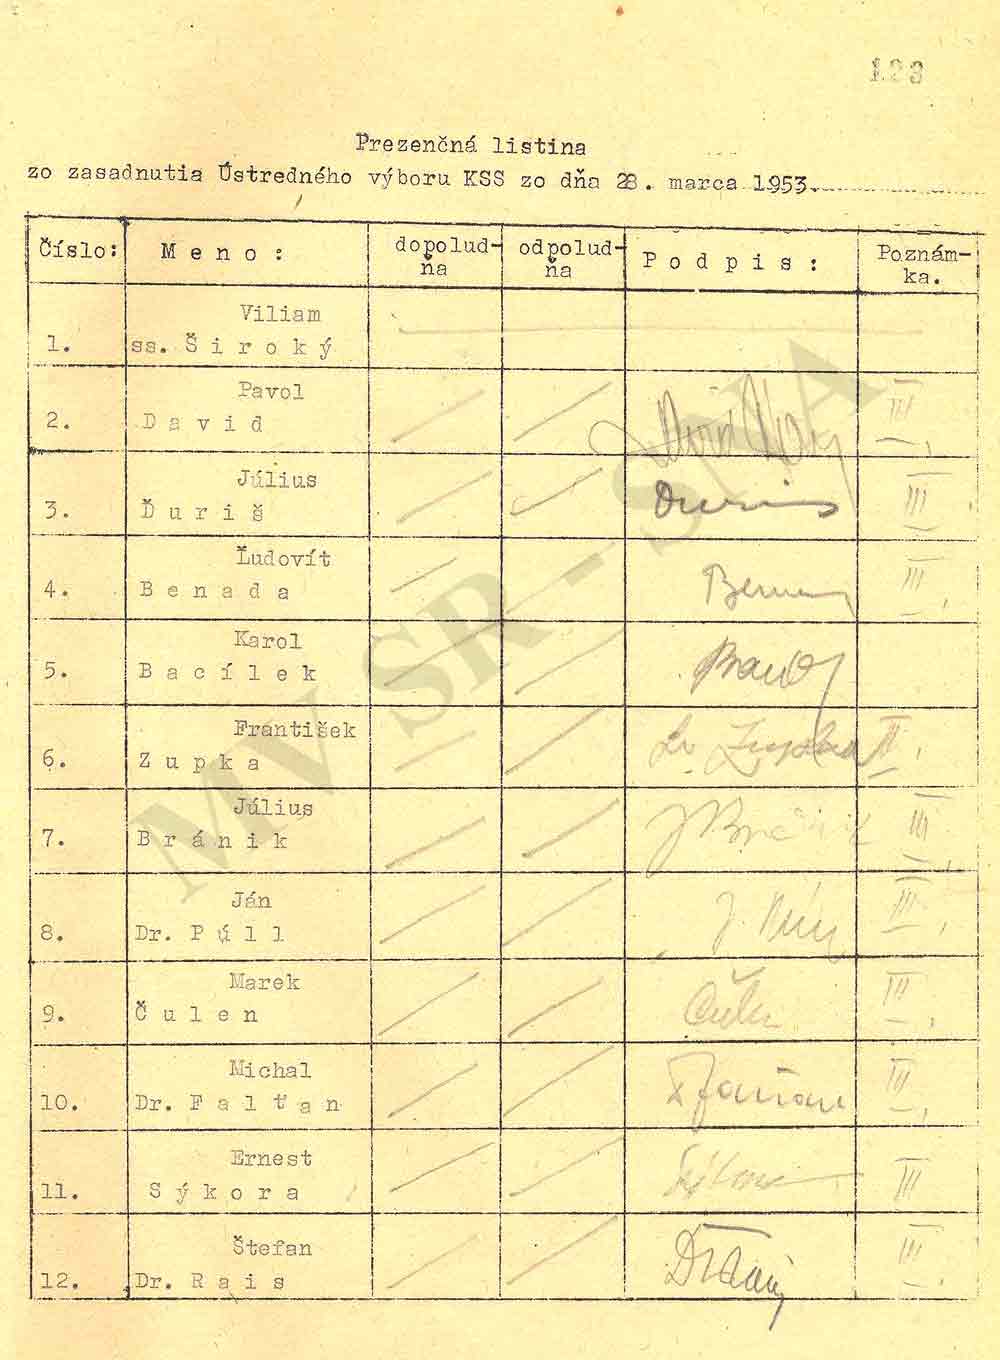 123
Prezenčná listina
zo zasadnutia Ústredného výboru KSS zo dňa 28. marca 1953.
Číslo: Meno: dopolud-ňa odpolud-ňa Podpis: Poznám-ka.
Viliam
1. ss. Široký
Pavol
2. David III
Július
3. Ďuriš Duris III
Ľudovít
4. Benada III
Karol
5. Bacílek
František
6. Zupka Zupka II
Július
7. Bránik J Bránik III
Ján
8. Dr. Púll J. III
Marek
9. Čulen Čulen III
Michal
10. Dr. Falťan III
Ernest
11. Sýkora Sýkora III
Štefan
12. Dr. Rais III
MV SR - SNA